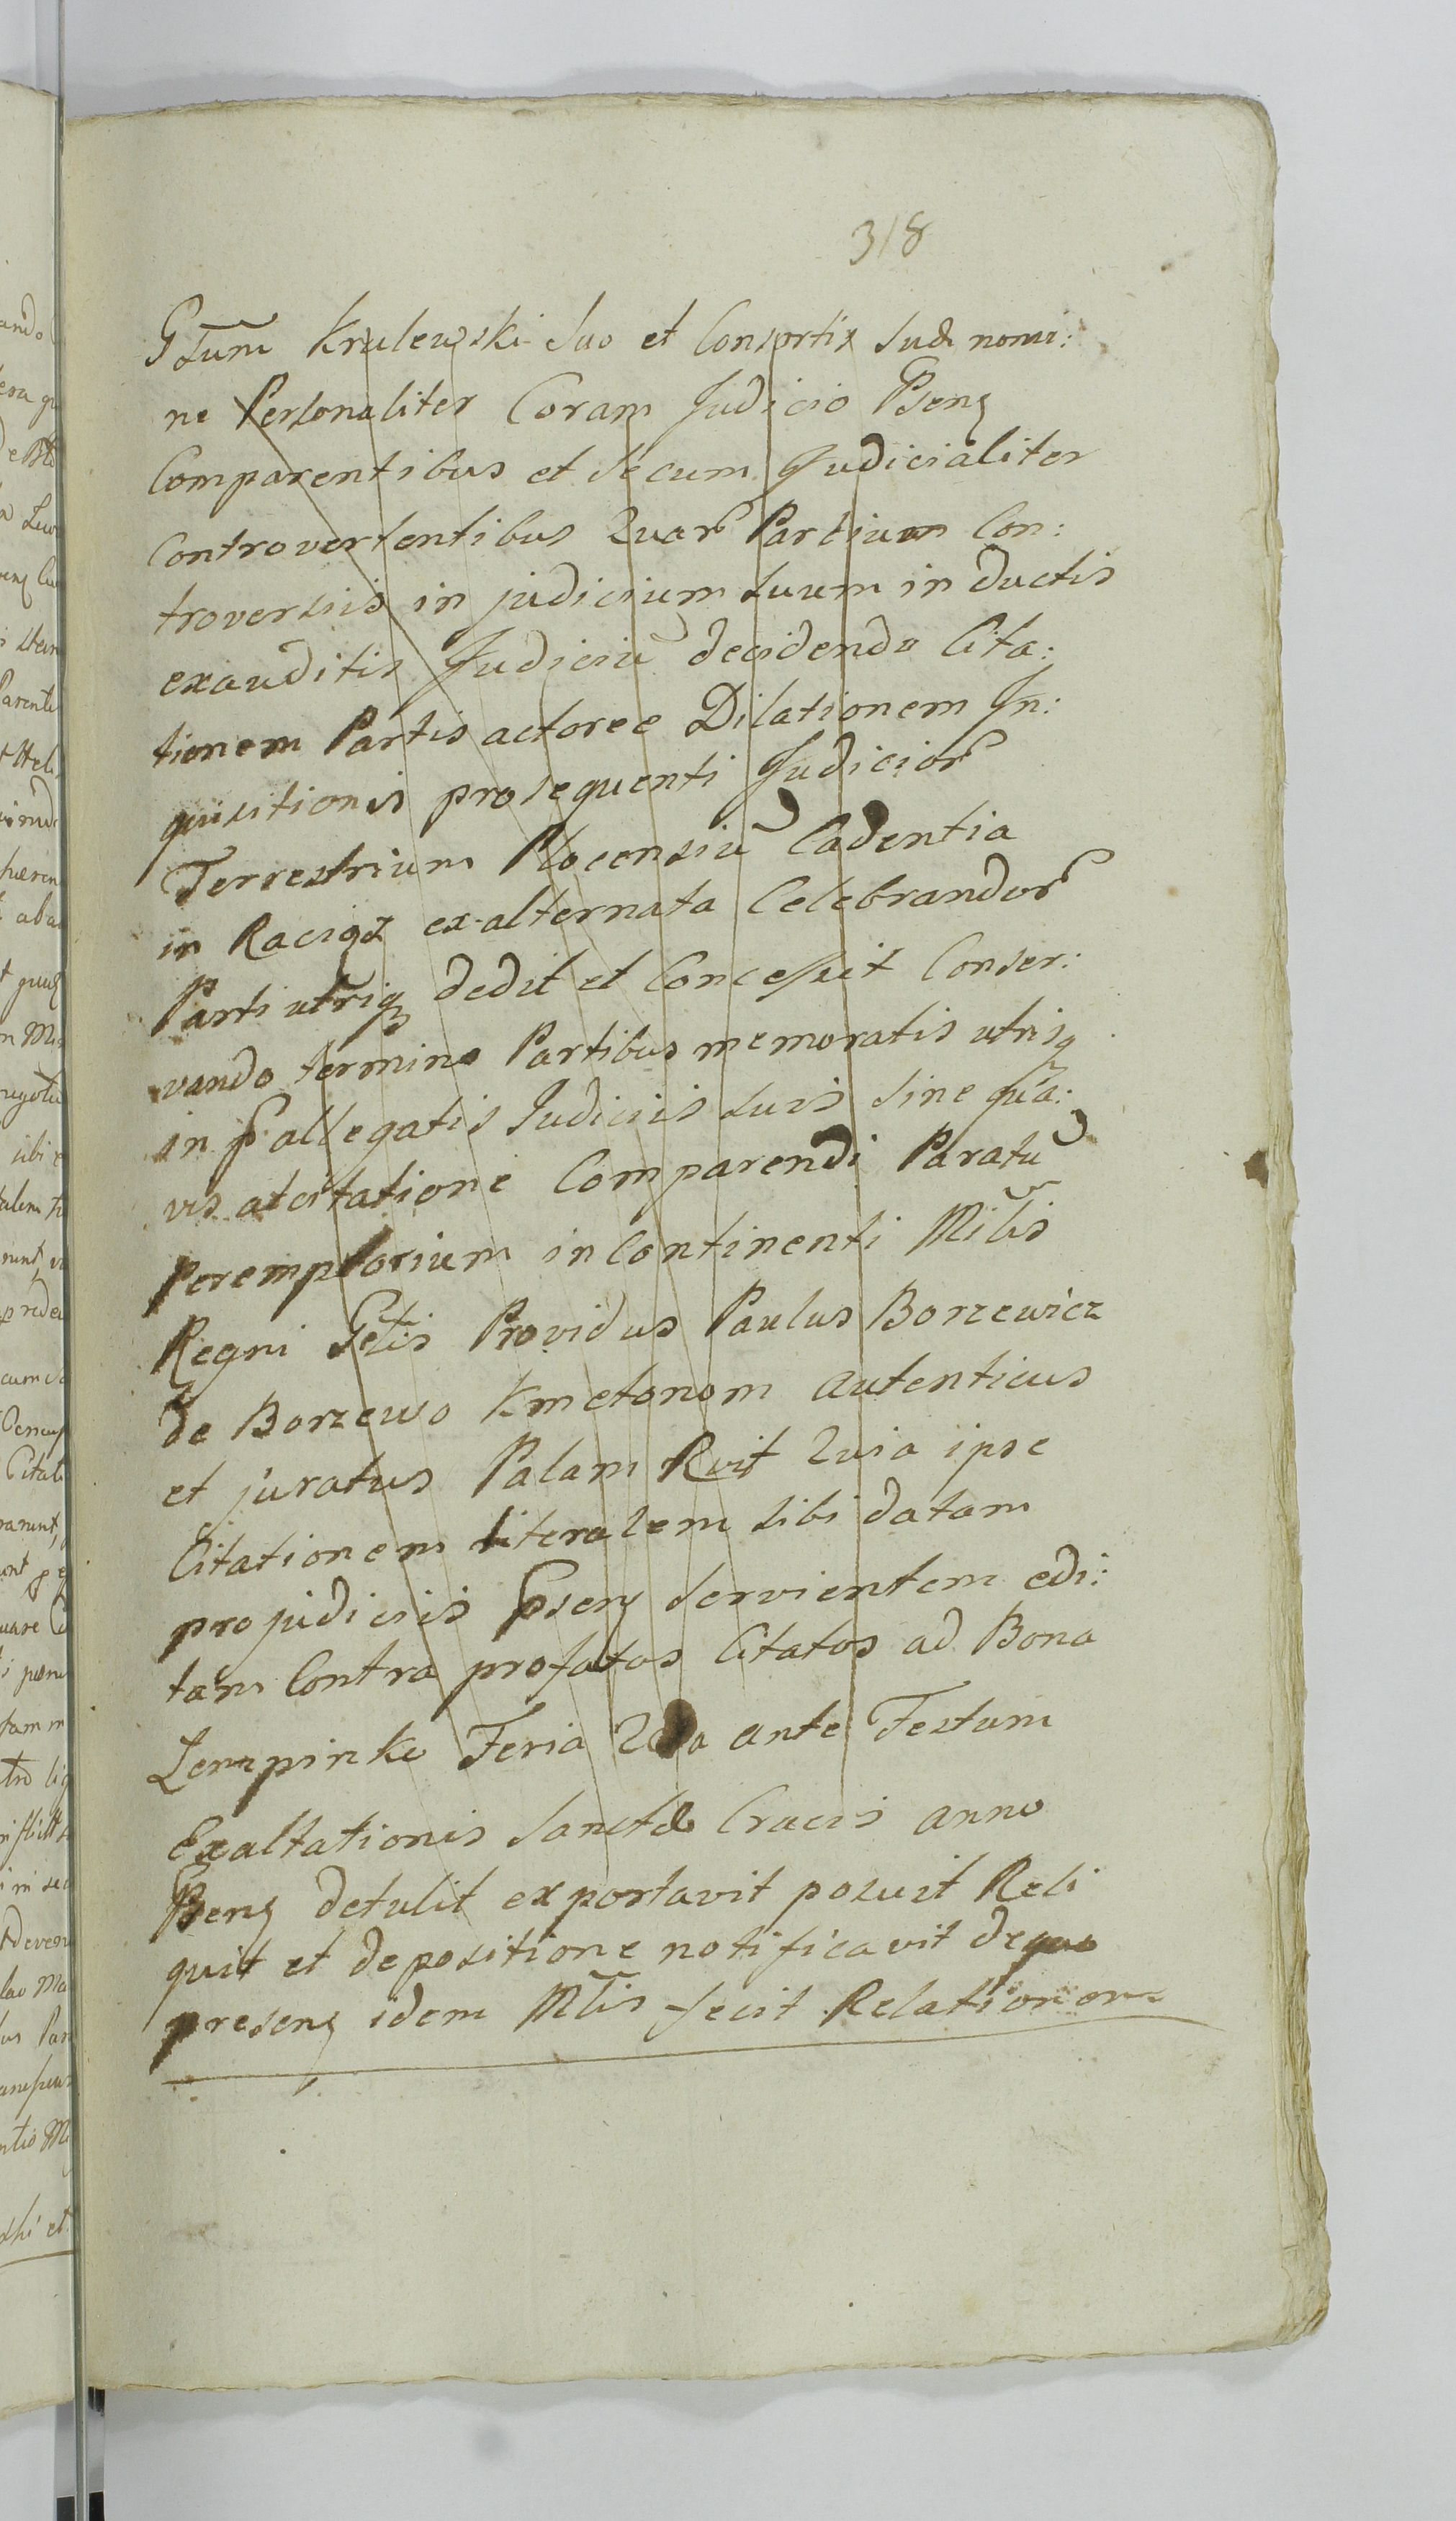 318
Gstum Krulewski Suo et Consortis Suae nomi:
ne Personaliter Coram Judicio Psenz
Comparentibus et Secum Judicialiter
Controvertentibus Quar Partium Con:
troversiis in judicium suum inductis
exauditis Judiciu decidendo Cita:
tionem Partis actoree Dilationem In:
quisitionis prosequenti Judicior
Terrestrium Plocensiu Cadentia
in Raciąz ex alternata Celebrandor
Parti utriq dedit et Concessit Conser:
vando termino Partibus memoratis utrisq
in allegatis Judiciis suis sine qua:
vis atcitatione Comparendi Paratu
Peremptorium in Continenti Mitis
Regni Gelis Providus Paulus Borzewicz
de Borzewo Kmetonom autenticus
et juratus Palam Rvit Quia ipse
Citationem literalem sibi datam
pro judiciis Psenz servientem edi:
tam Contra profatos Citatos ad Bona
Lempinke Feria 2da ante Festum
Exaltationis Sanctae Crucis anno
Psenz detulit exportavit posuit Reli
quit et depositione notificavit dequo
presenz idem Mtis fecit Relationem